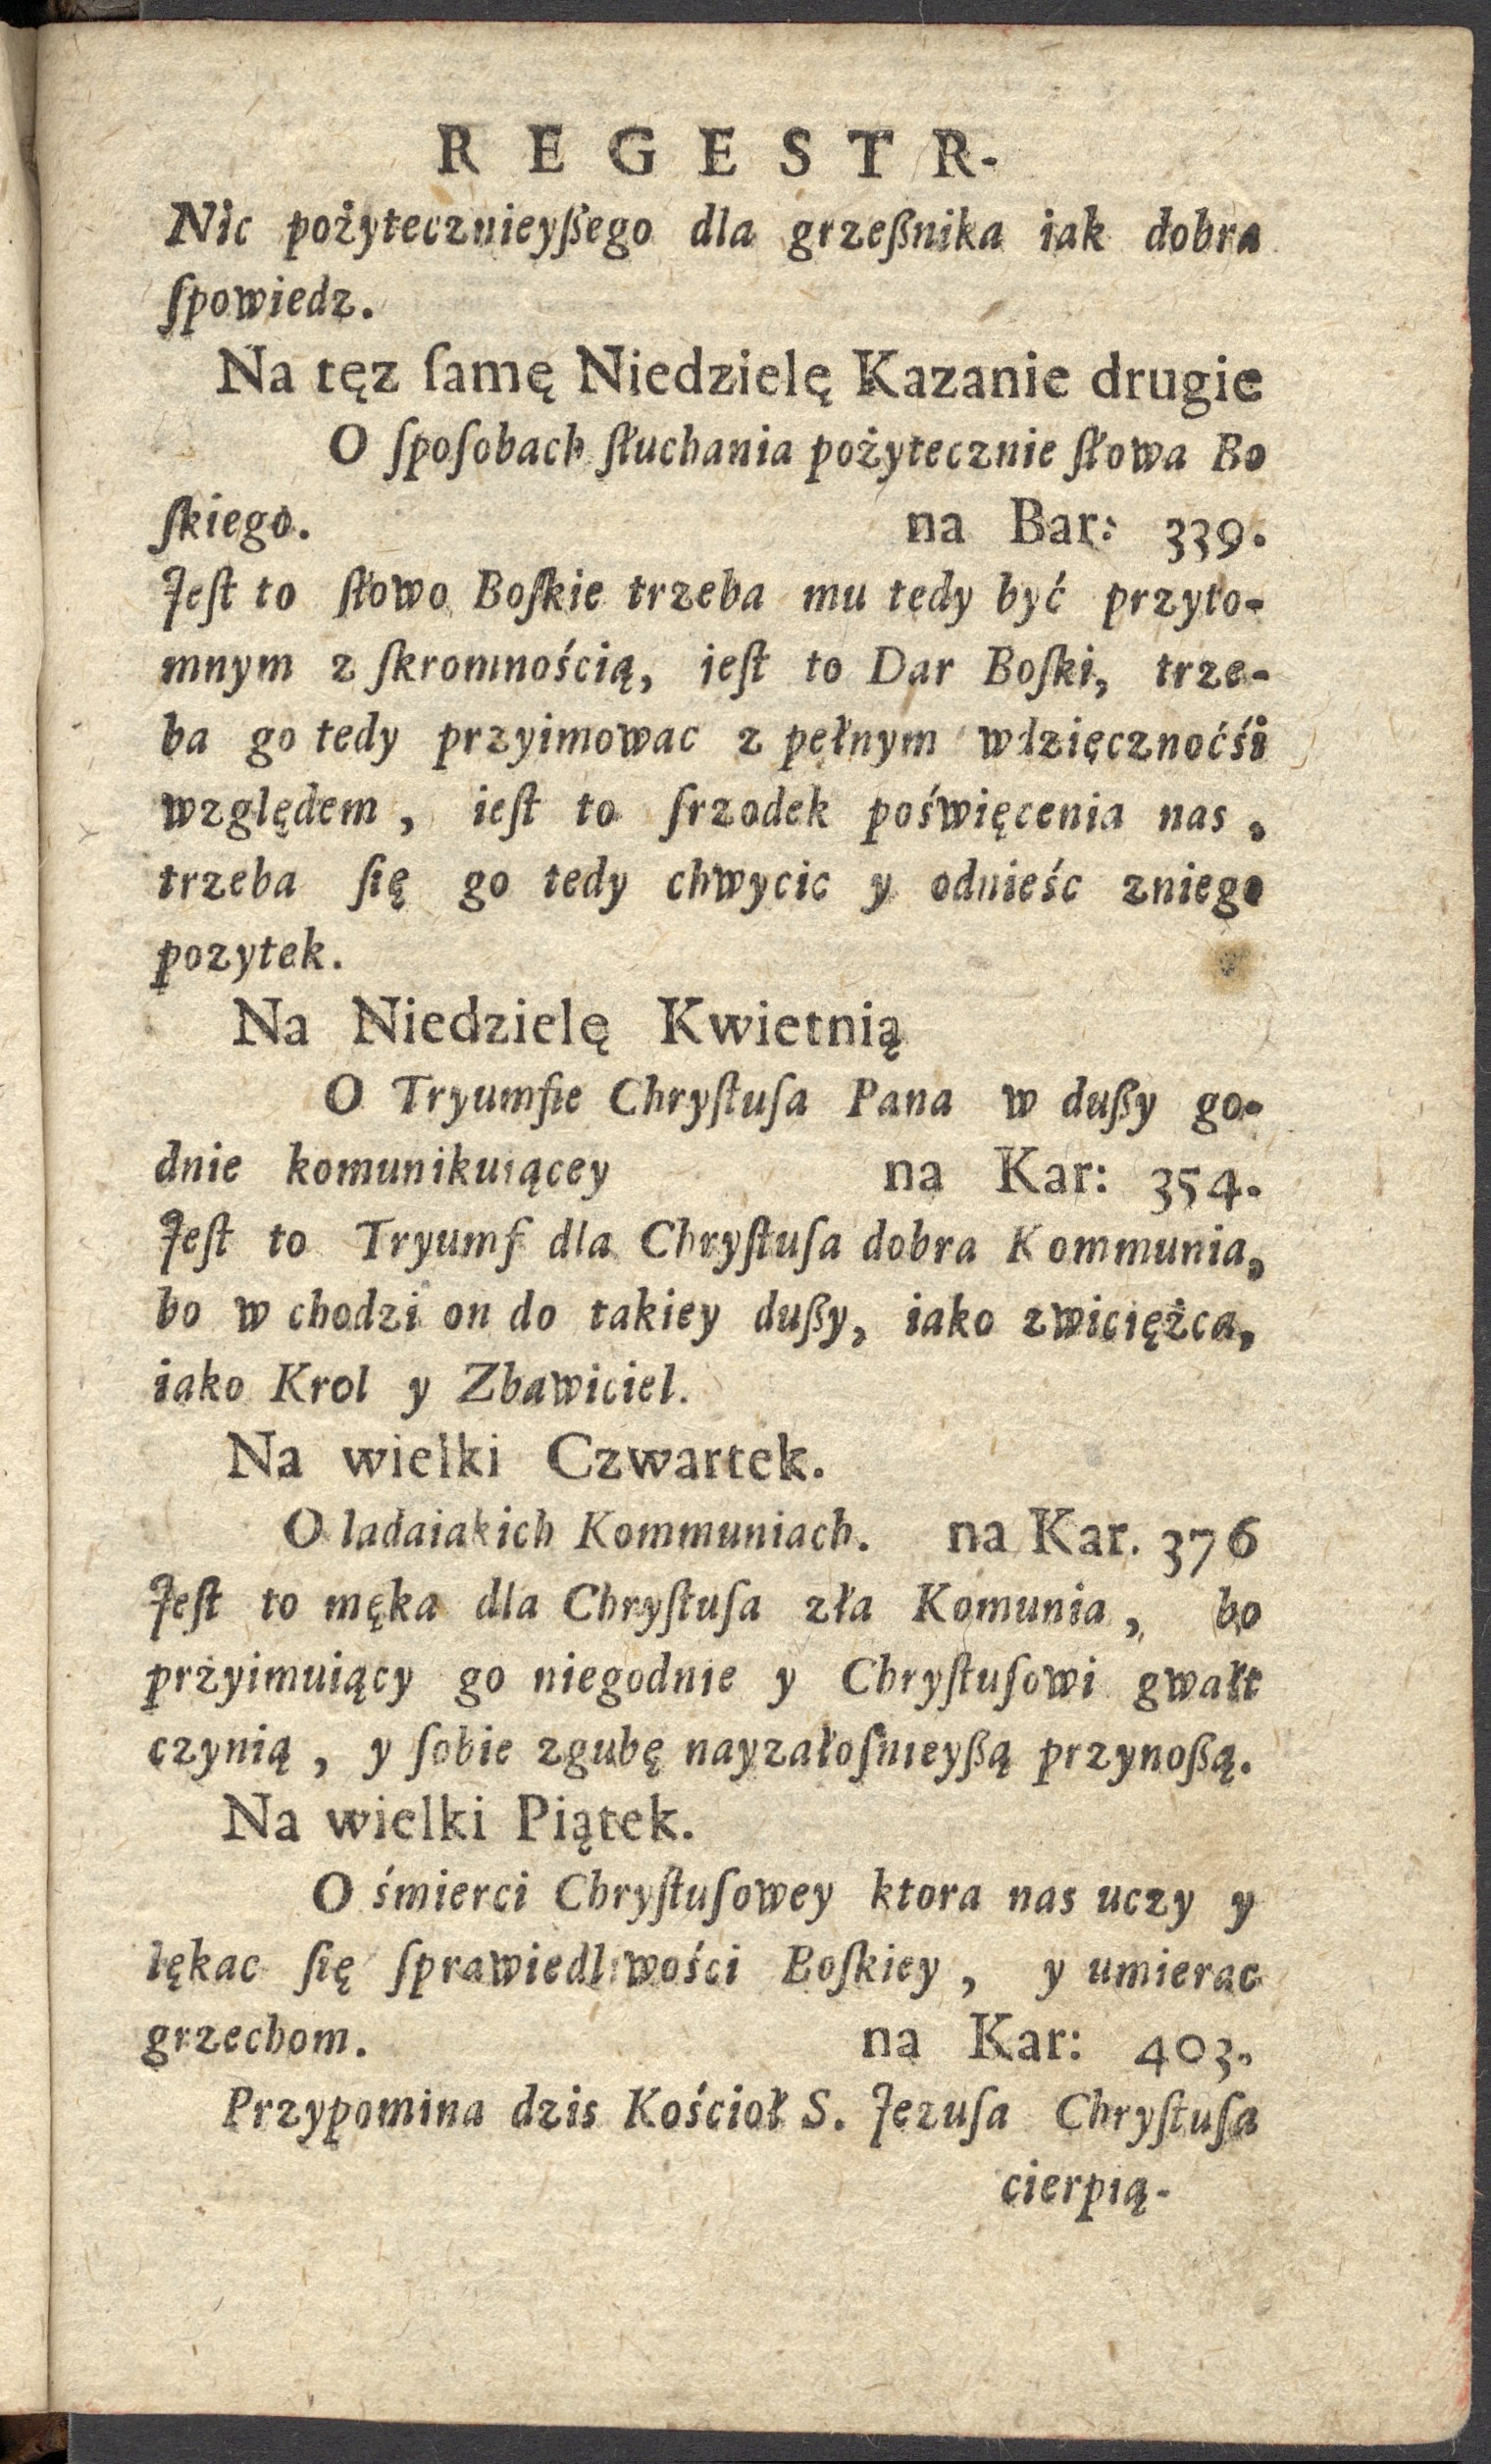 REGESTR.
Nic pożytecznieyßego dla grzeßnika iak dobra
ſpowiedz.
Na tęz ſamę Niedzielę Kazanie drugie
O ſpoſobach ſłuchania pożytecznie ſłowa Bo
ſkiego. na Bar: 339.
Jeſt to ſłowo Boſkie trzeba mu tedy być przyto-
mnym z ſkromnością, ieſt to Dar Boſki, trze-
ba go tedy przyimowac z pełnym wdzięcznoćśi
względem, ieſt to ſrzodek poświęcenia nas,
trzeba ſię go tedy chwycic y odnieśc zniego
pozytek.
Na Niedzielę Kwietnią
O Tryumfie Chryſtuſa Pana w dußy go-
dnie komunikuiącey na Kar: 354.
Jeſt to Tryumf dla Chryſtuſa dobra Kommunia,
bo w chodzi on do takiey dußy, iako zwiciężca,
iako Krol y Zbawiciel.
Na wielki Czwartek.
O ladaiakich Kommuniach. na Kar. 376
Jeſt to męka dla Chryſtuſa zła Komunia, bo
przyimuiący go niegodnie y Chryſtuſowi gwałt
czynią, y ſobie zgubę nayzałoſnieyßą przynoßą.
Na wielki Piątek.
O śmierci Chryſtuſowey ktora nas uczy y
lękac ſię ſprawiedliwości Boſkiey, y umierac
grzechom. na Kar: 403.
Przypomina dzis Kościoł S. Jezuſa Chryſtuſa
cierpią-